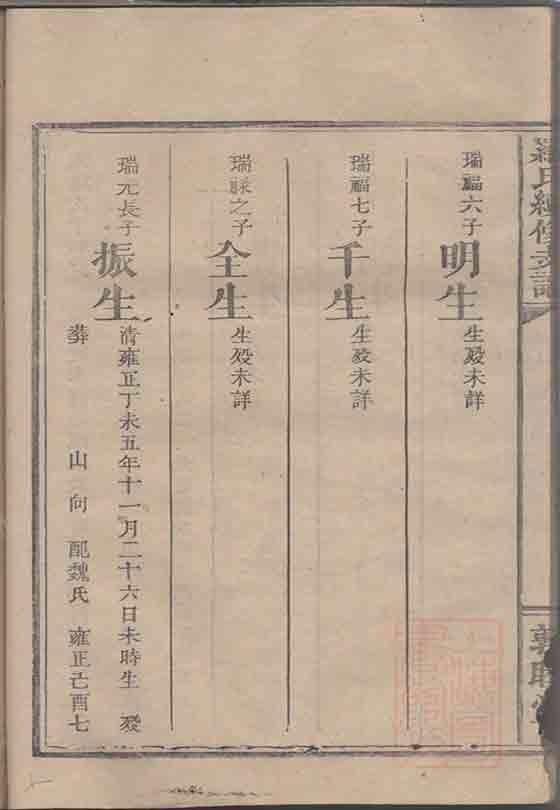 羅氏續修支譜
瑞福六子
明生
生歿未詳
瑞福七子
千生
生歿未詳
瑞昧之子
全生
生歿未詳
瑞元長子
振生
清雍正丁未五年十一月二十六日未時生 歿
葬 山 向 配魏氏 雍正己酉七
敦睦堂